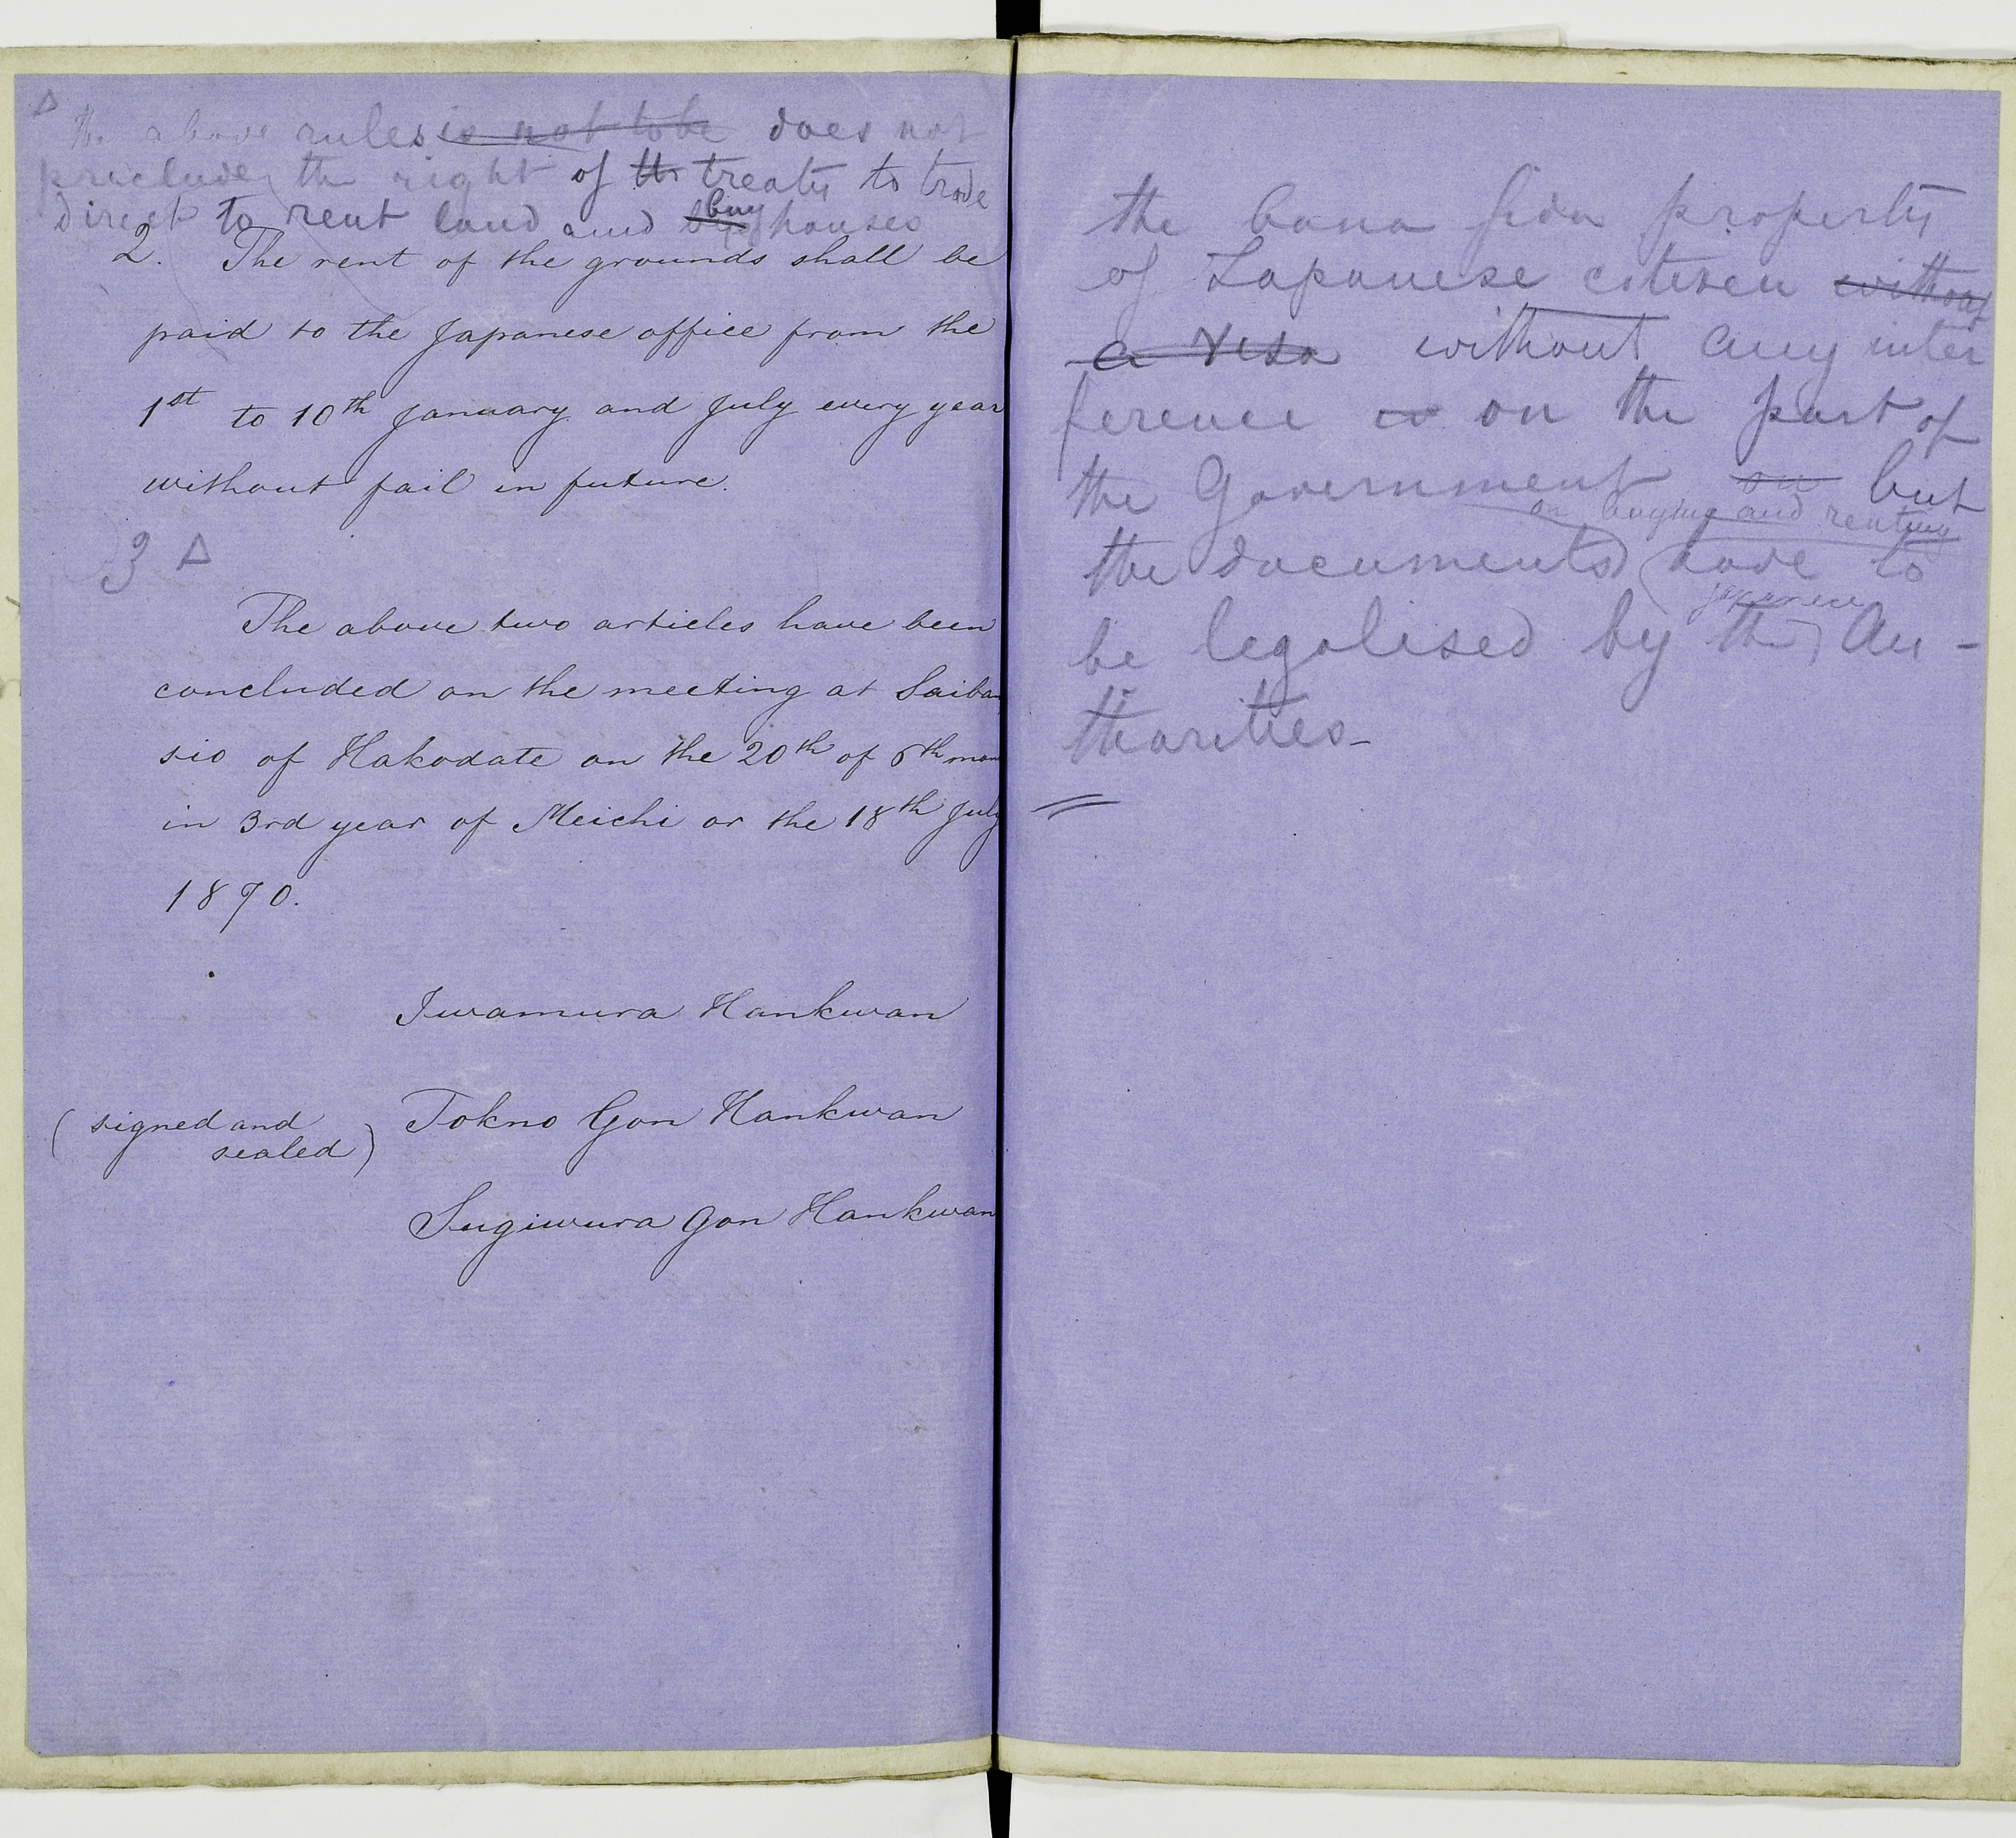 Δ
the above rules is not to be does not
preclude the right of th treaty to trade
direct to rent land and buy buy houses
2. The rent of the grounds shall be
paid to the Japanese office from the
1st to 10th January and July every year
without fail in future.
3 Δ
The above two articles have been
concluded on the meeting at Saiban
sio of Hakodate on the 20th of 6th mon
in 3rd year of Meichi or the 18th July
1870.
Iwamura Hankwan
(signed and
sealed)
Tokno Gon Hankwan
Sugiwura Gon Hankwan
the bona fida property
of Japanese citesen without
a visa without any inter
ference on the part of
the Government on but
on buying and renting
the documents have to
japanese
be legalised by the Au-
thorities-